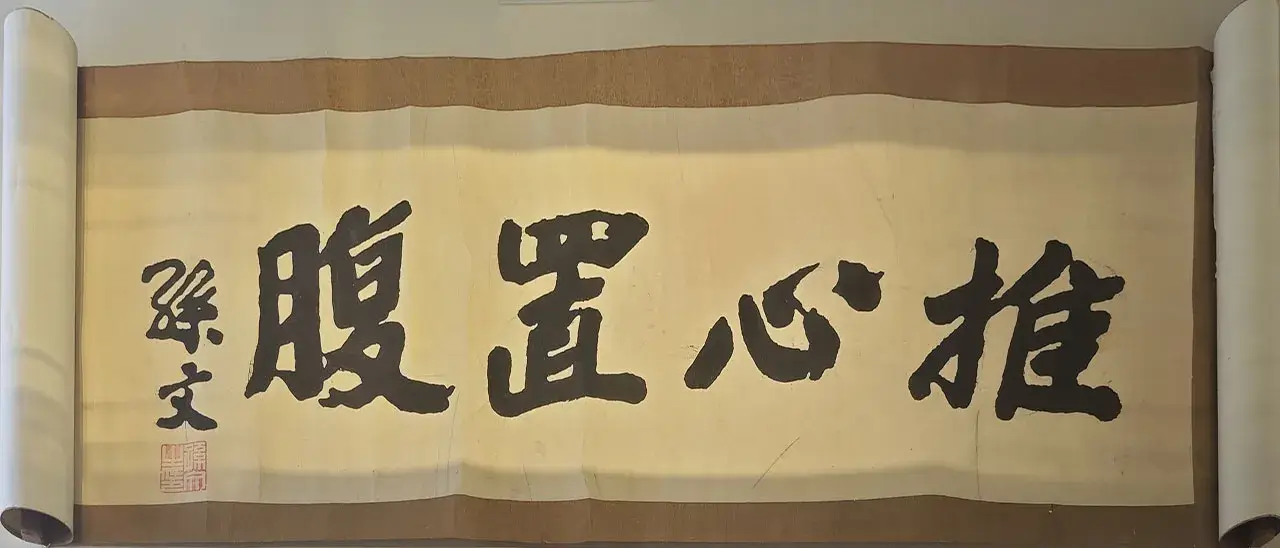 推心置腹
孫文
孫文之印